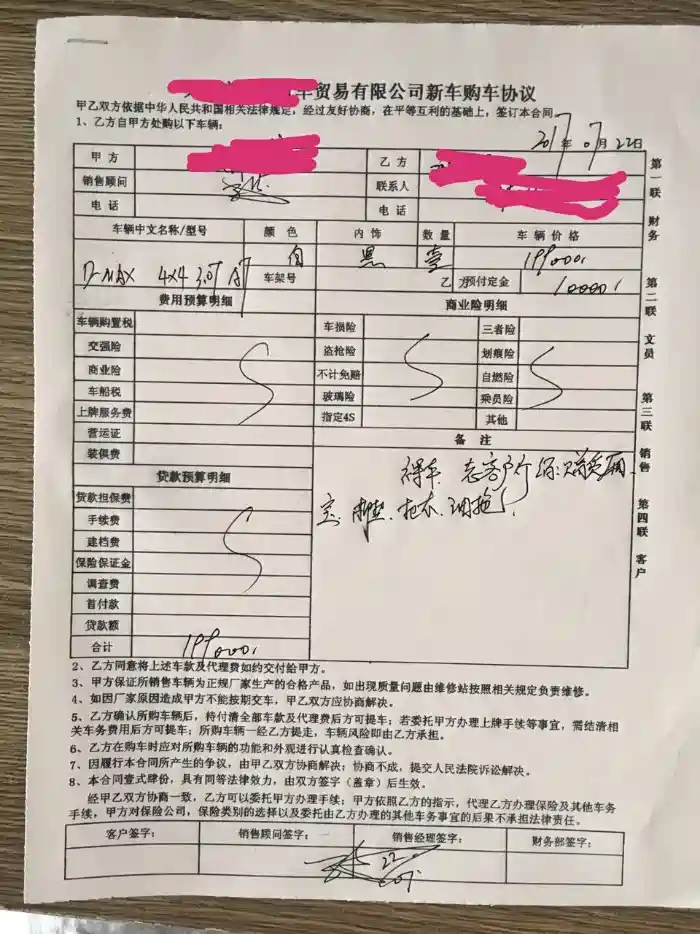 车贸易有限公司新车购车协议
甲乙双方依据中华人民共和国相关法律规定，经过友好协商，在平等互利的基础上，签订本合同。
1、乙方自甲方处购以下车辆：
2017年07月22日
甲方 乙方
销售顾问 联系人
电话 电话
车辆中文名称/型号 颜色 内饰 数量 车辆价格
D-MAX 4x4 3.0T AT 白 黑 壹 199000
车架号 乙方预付定金 10000
费用预算明细 商业险明细
车辆购置税 车损险 三者险
交强险 盗抢险 划痕险
商业险 不计免赔 自燃险
车船税 玻璃险 乘员险
上牌服务费 指定4S 其他
营运证 备注
装俱费
裸车
贷款预算明细
贷款担保费
手续费
建档费
保险保证金
调查费
首付款
贷款额
合计 199000
2、乙方同意将上述车款及代理费如约交付给甲方。
3、甲方保证所销售车辆为正规厂家生产的合格产品，如出现质量问题由维修站按照相关规定负责维修。
4、如因厂家原因造成甲方不能按期交车，甲乙双方应协商解决。
5、乙方确认所购车辆后，待付清全部车款及代理费后方可提车；若委托甲方办理上牌手续等事宜，需结清相
关车务费用后方可提车；所购车辆一经乙方提走，车辆风险即由乙方承担。
6、乙方在购车时应对所购车辆的功能和外观进行认真检查确认。
7、因履行本合同所产生的争议，由甲乙双方协商解决；协商不成，提交人民法院诉讼解决。
8、本合同壹式肆份，具有同等法律效力，由双方签字（盖章）后生效。
经甲乙双方协商一致，乙方可以委托甲方办理手续；甲方依照乙方的指示，代理乙方办理保险及其他车务
手续，甲方对保险公司，保险类别的选择以及委托由乙方办理的其他车务事宜的后果不承担法律责任。
客户签字： 销售顾问签字： 销售经理签字： 财务部签字：
第一联 财务
第二联 文员
第三联 销售
第四联 客户